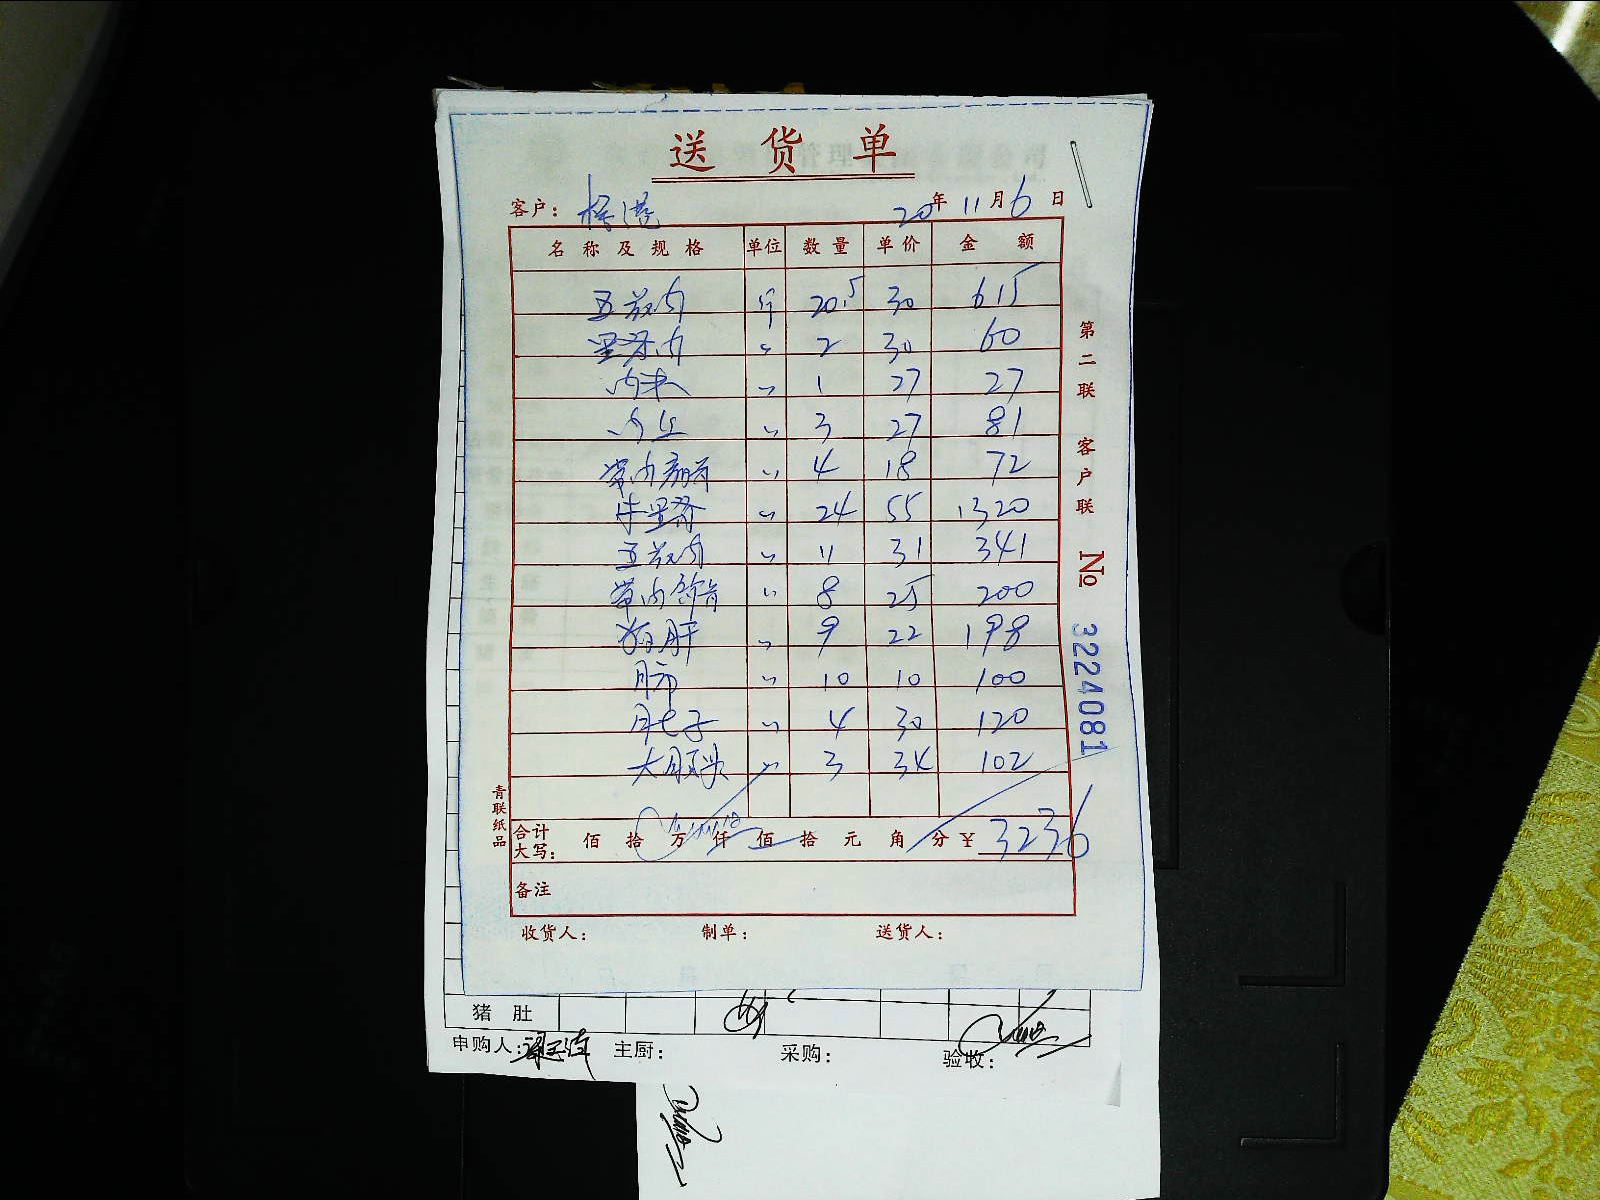 送货单
客户： 20年11月6日
名称及规格 单位 数量 单价 金额
五花肉 斤 20.5 30 615
里脊肉 〃 2 30 60
肉末 〃 1 27 27
肉丝 〃 3 27 81
带肉扇骨 〃 4 18 72
牛里脊 〃 24 55 1320
五花肉 〃 11 31 341
带肉 〃 8 25 200
猪肝 〃 9 22 198
〃 10 10 100
肚子 〃 4 30 120
大 〃 3 34 102
合计大写： 佰 拾 万 仟 佰 拾 元 角 分 ￥3236
备注
收货人： 制单： 送货人：
第二联 客户联 № 3224081
青联纸品
猪肚
申购人： 主厨： 采购： 验收：